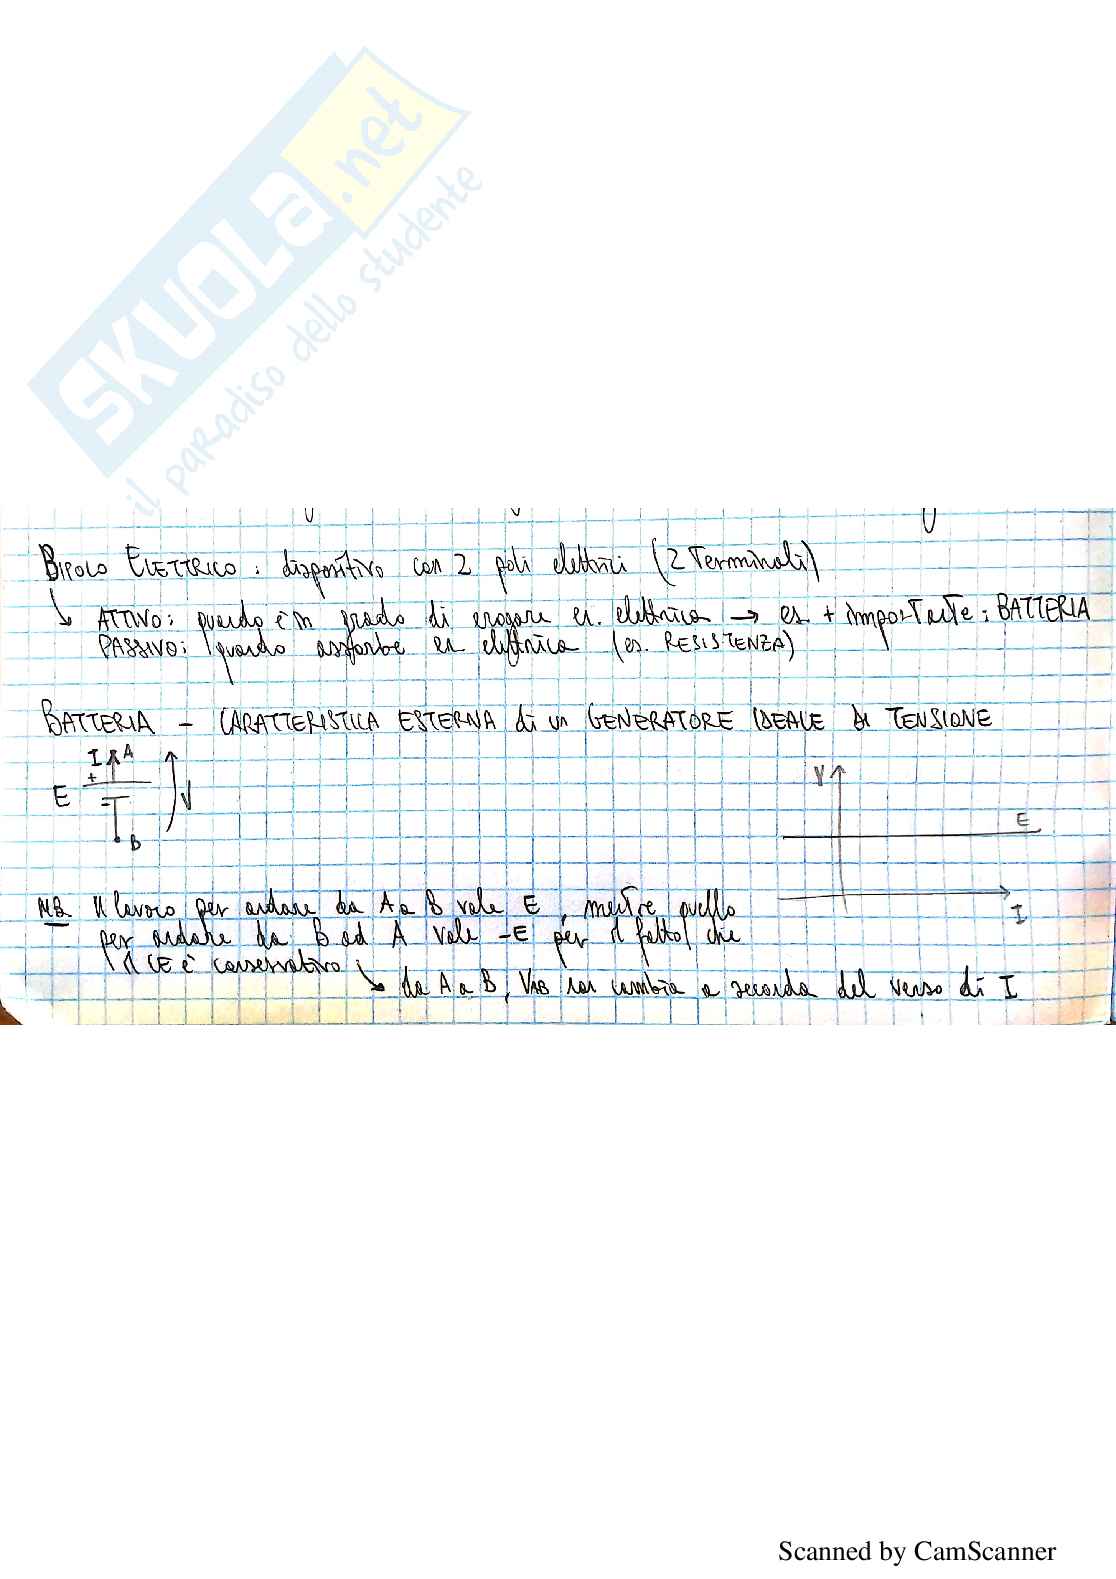 SKUOLA.net
il paradiso dello studente
BIPOLO ELETTRICO: dispositivo con 2 poli elettrici (2 Terminali)
ATTIVO: quando è in grado di erogare en. elettrica → es + importante: BATTERIA
PASSIVO: quando assorbe en elettrica (es. RESISTENZA)
BATTERIA - CARATTERISTICA ESTERNA di un GENERATORE IDEALE DI TENSIONE
I A
+
E V
B
V
E
I
NB Il lavoro per andare da A a B vale E, mentre quello
per andare da B ad A vale -E per il fatto che
il CE è conservativo
da A a B, VAB non cambia a seconda del verso di I
Scanned by CamScanner